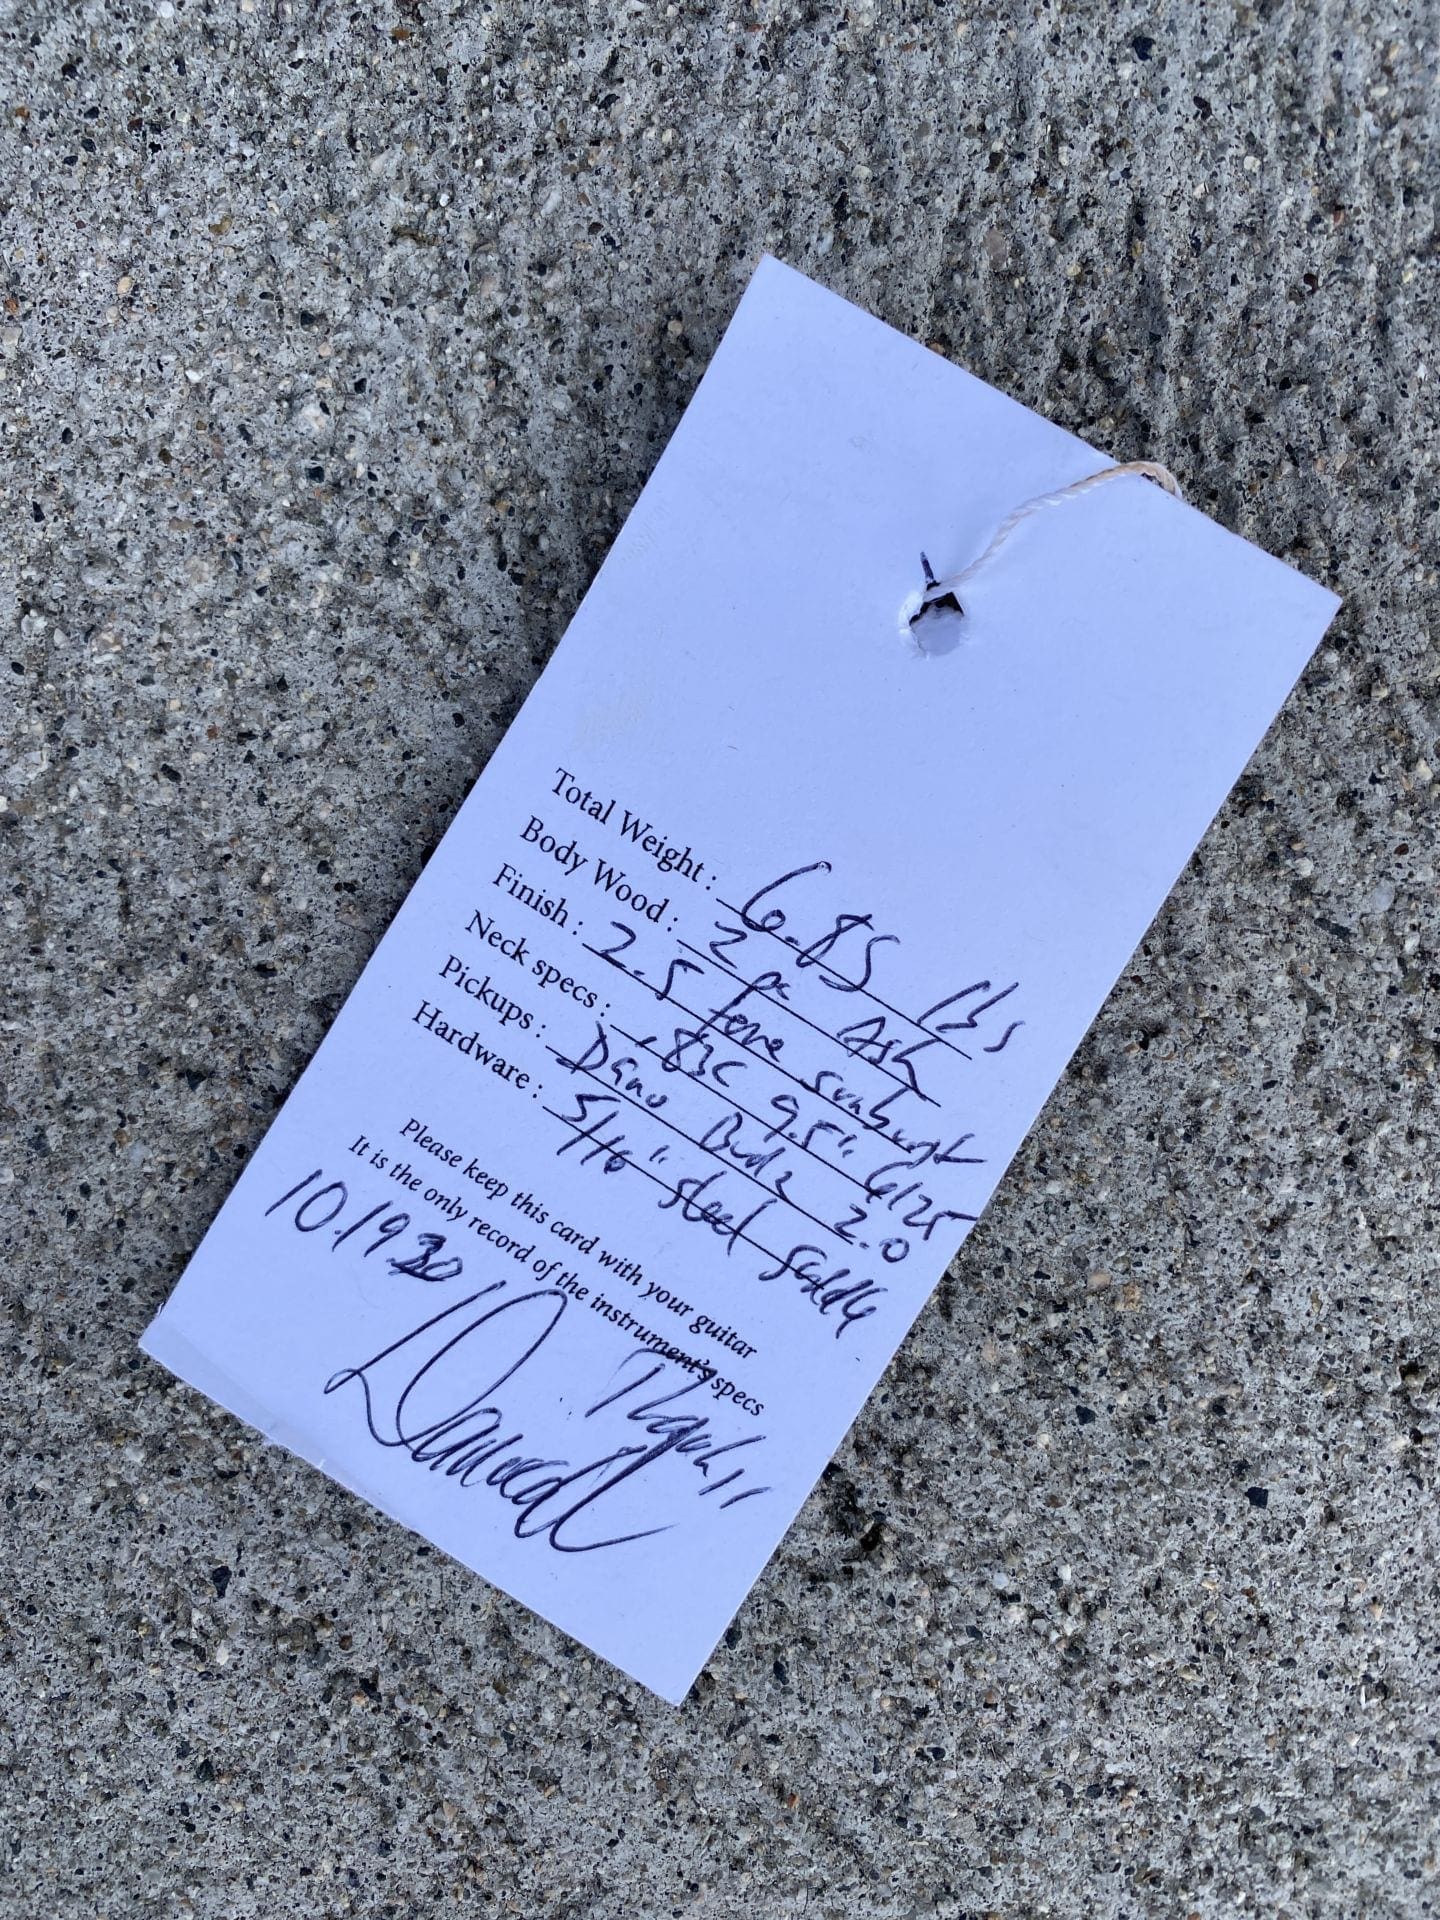 Total Weight : 6.85 lbs
Body Wood : 2 pc Ash
Finish : 2.5 tone sunburst
Neck specs : .83C 9.5" 6125
Pickups : Dano 2.0
Hardware : 5/16" steel saddle
Please keep this card with your guitar
It is the only record of the instrument's specs
10.19